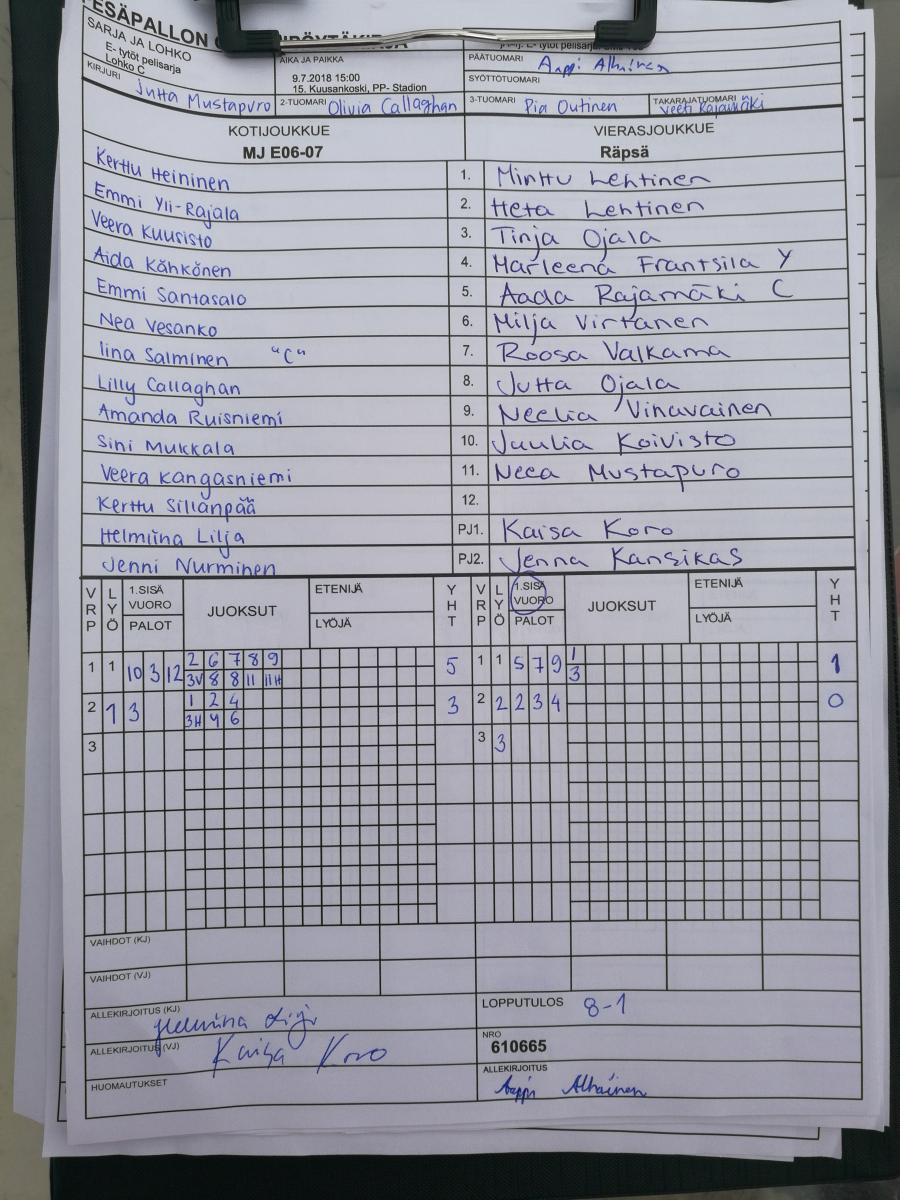 SARJA JA LOHKO
E- tytöt pelisarja
Lohko C
AIKA JA PAIKKA
9.7.2018 15:00
15. Kuusankoski, PP- Stadion
E- tytöt pelisarja
PÄÄTUOMARI Aappi Alhainen
SYÖTTÖTUOMARI
KIRJURI Jutta Mustapuro
2-TUOMARI Olivia Callaghan
3-TUOMARI Pia Outinen
TAKARAJATUOMARI Veeti Rajamäki
KOTIJOUKKUE VIERASJOUKKUE
MJ E06-07 Räpsä
Kerttu Heininen 1. Minttu Lehtinen
Emmi Yli-Rajala 2. Heta Lehtinen
Veera Kuusisto 3. Tinja Ojala
Aida Kähkönen 4. Marleena Frantsila Y
Emmi Santasalo 5. Aada Rajamäki C
Nea Vesanko 6. Milja Virtanen
Iina Salminen "C" 7. Roosa Valkama
Lilly Callaghan 8. Jutta Ojala
Amanda Ruisniemi 9. Neelia Vihavainen
Sini Mukkala 10. Juulia Koivisto
Veera Kangasniemi 11. Neea Mustapuro
Kerttu Sillanpää 12.
Helmiina Lilja PJ1. Kaisa Koro
Jenni Nurminen PJ2. Jenna Kansikas
VRP LYÖ 1.SISÄ VUORO PALOT JUOKSUT ETENIJÄ LYÖJÄ YHT VRP LYÖ 1.SISÄ VUORO PALOT JUOKSUT ETENIJÄ LYÖJÄ YHT
1 1 10 3 12 2 6 7 8 9 5 1 1 5 7 9 1 1
3V 8 8 11 11H 3
2 1 3 1 2 4 3 2 2 2 3 4 0
3H 4 6
3 3 3
VAIHDOT (KJ)
VAIHDOT (VJ)
ALLEKIRJOITUS (KJ) Helmiina Lilja
LOPPUTULOS 8-1
ALLEKIRJOITUS (VJ) Kaisa Koro
NRO
610665
HUOMAUTUKSET
ALLEKIRJOITUS
Aappi Alhainen